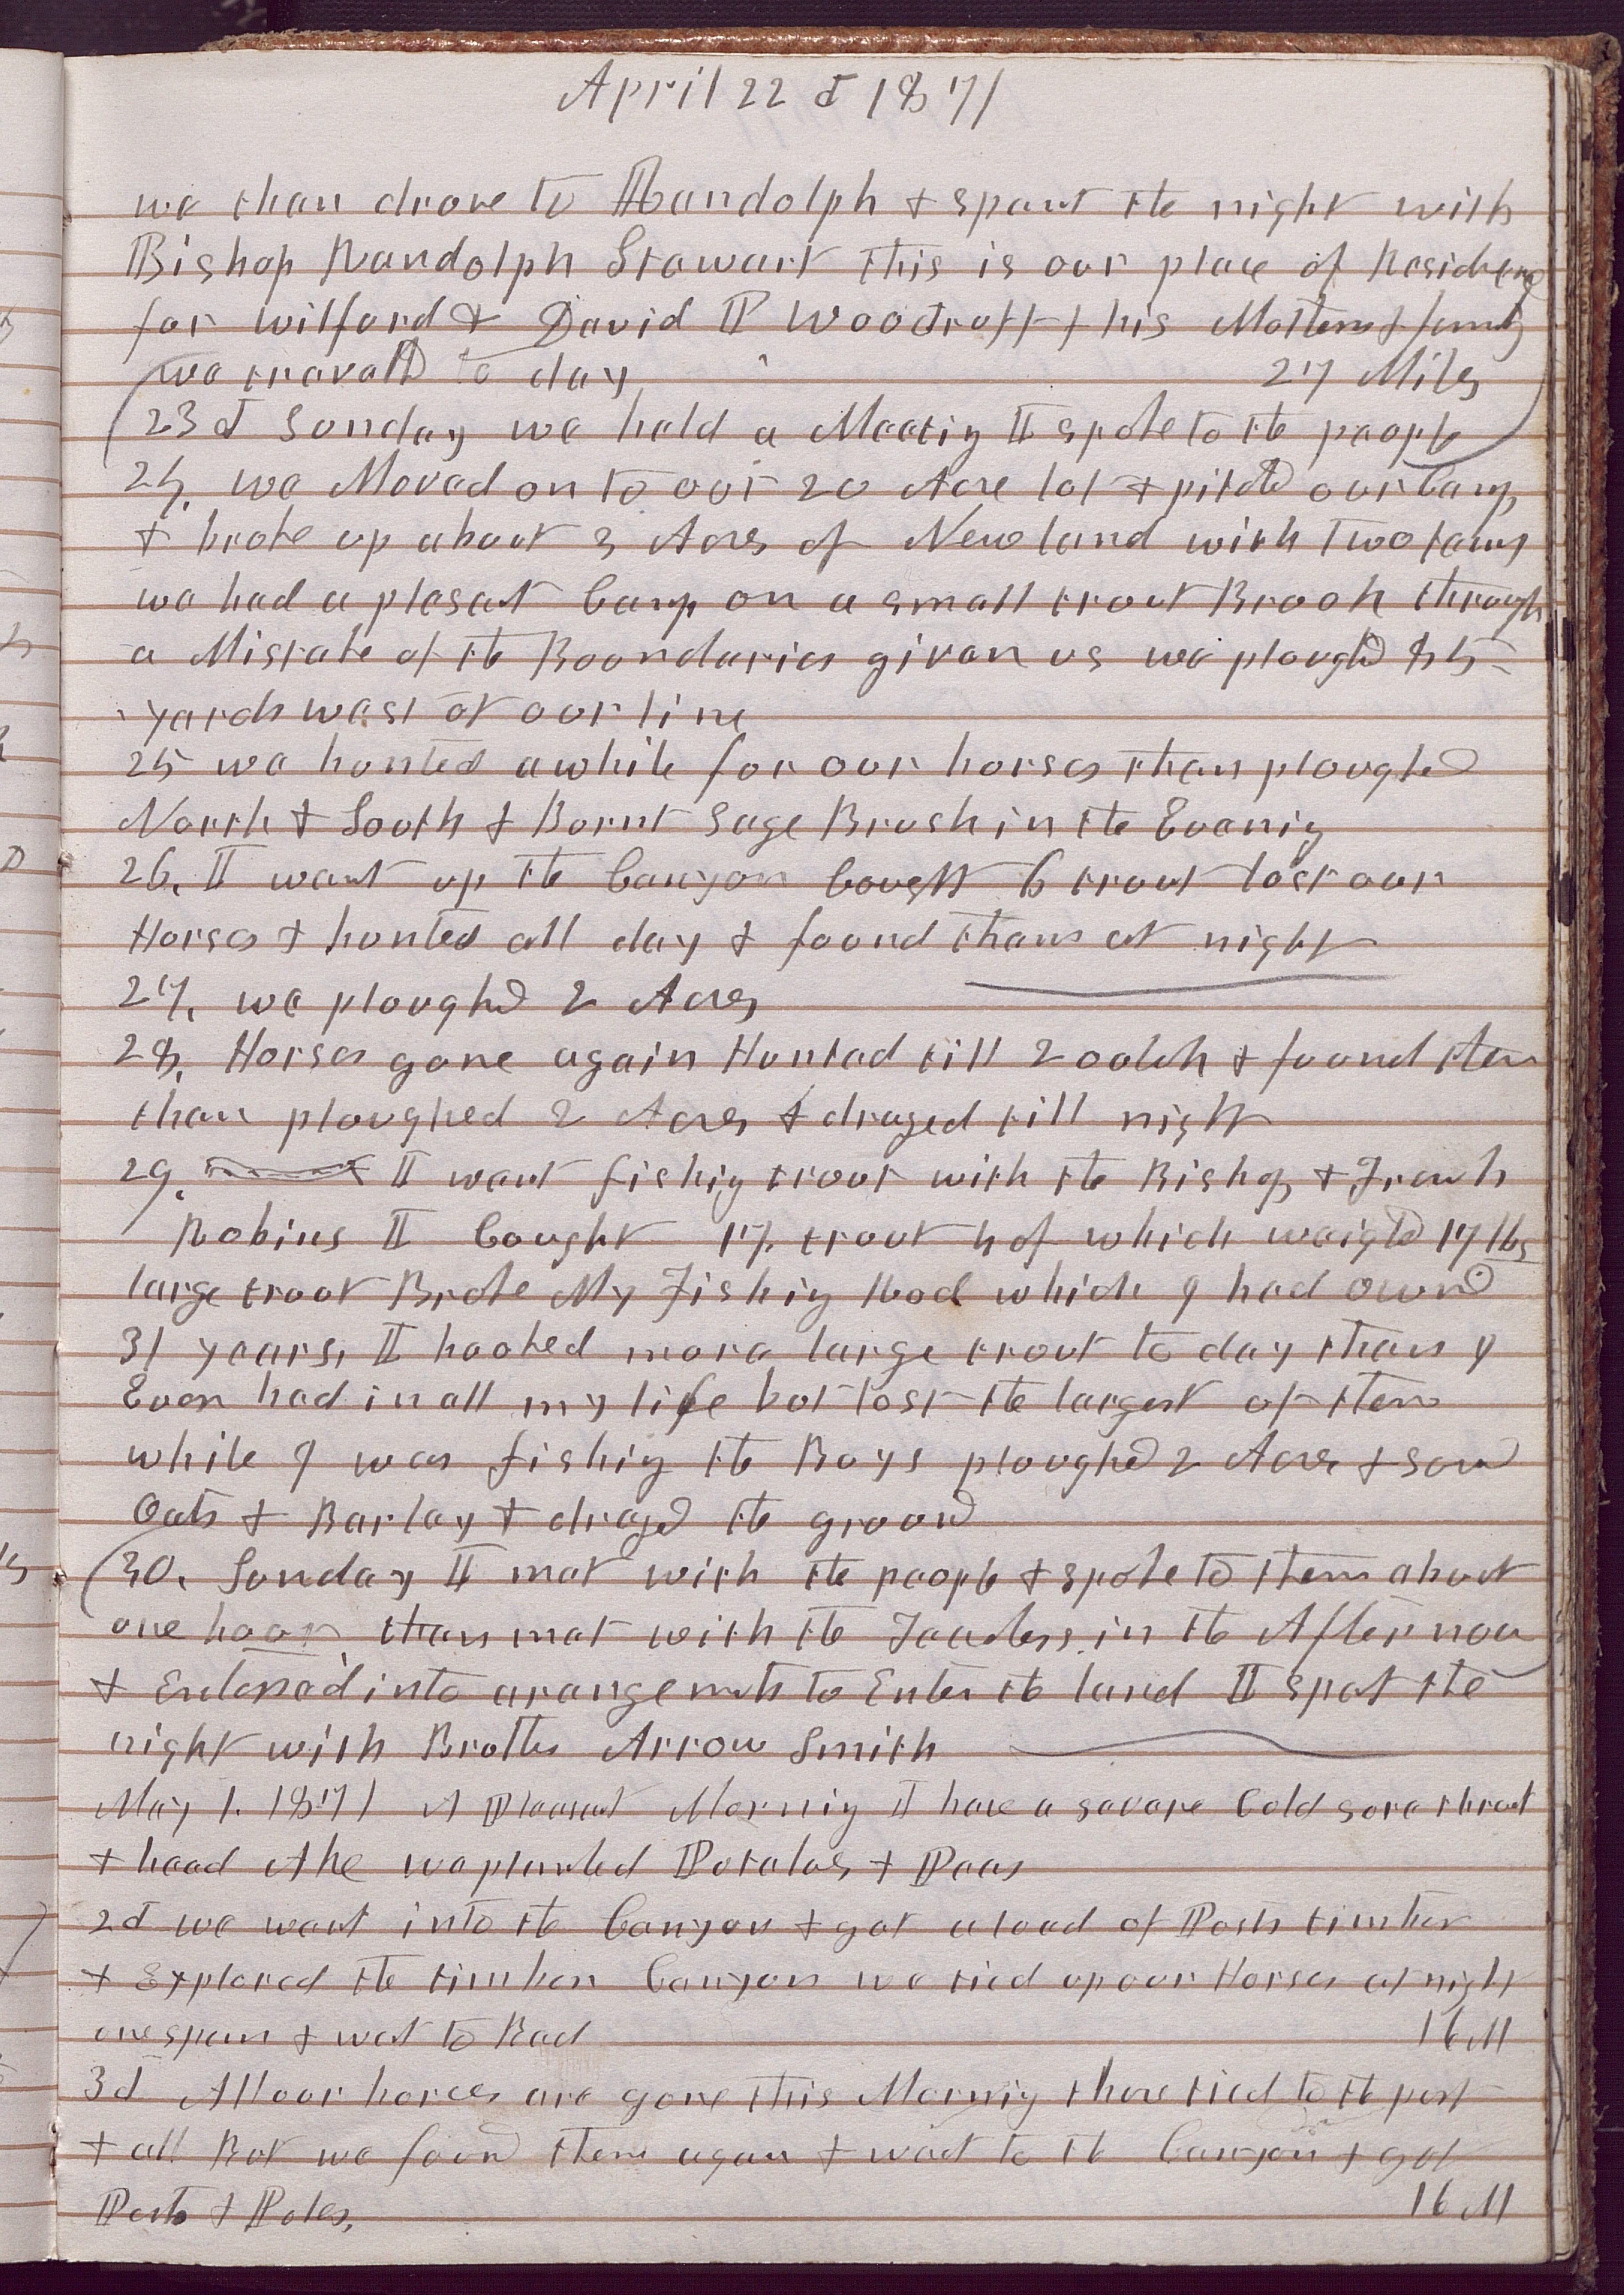 April 22d 1871
we then drove to Randolph & spent the night with
Bishop Randolph Stewart This is our place of Residence
for Wilford & David P Woodruff & his Mother & family
we travelled to day 27 Miles
23d Sunday we held a Meeting I spoke to the people
24. we Moved on to our 20 Acre lot & pitched our Camp
& broke up about 3 Acres of New land with Two teams
we had a plesant Camp on a small trout Brook through
a Mistake of the Boundaries given us we ploughed 85
yards west of our line
25 we hunted awhile for our horses then ploughed
North & South & Burnt Sage Brush in the Evening
26. I went up the Canyon Cought 6 trout lost our
Horses & hunted all day & found them at night
27. we ploughed 2 Acres
28. Horses gone again Hunted till 2 oclok & found them
then ploughed 2 Acres & draged till night
29. I went fishing trout with the Bishop & Frank
Robins I Cought 17 trout 4 of which weighed 17 lbs
large trout Broke My Fishing Rod which I had owned
31 years, I hooked more large trout to day than I
Ever had in all my life but lost the largest of them
while I was fishing the Boys ploughed 2 Acres & sowed
Oats & Barley & draged the ground
30. Sunday I met with the people & spoke to them about
one hour then met with the Teachers in the Afternoon
& Entered into arangements to Enter the land I spent the
night with Brother Arrow Smith
May 1. 1871 A Pleasant Morning I have a severe Cold sore throat
& head Ake we planted Potatoes & Peas
2d we went into the Canyon & got a load of Posts timber
& Explored the timber Canyon we tied up our Horses at night
one span & went to Bed 16 M
3d All our horces are gone this Morning those tied to the post
& all But we found them again & went to the Canyon & got
Posts & Poles. 16 M